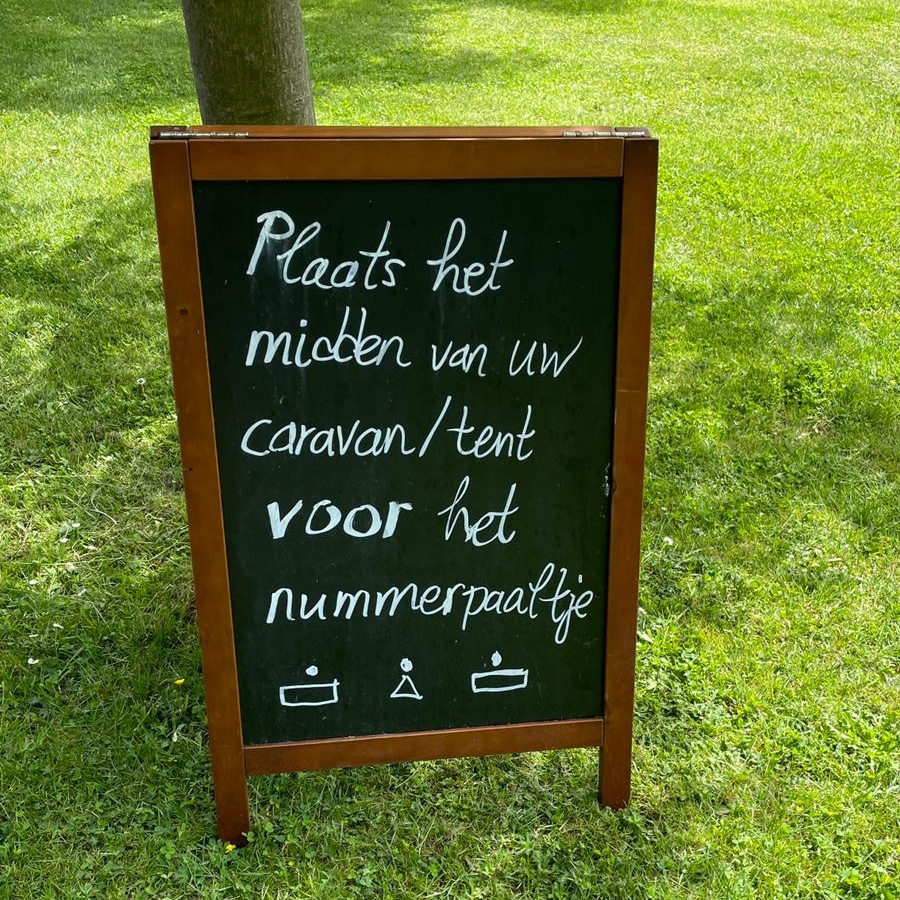 Plaats het
midden van uw
caravan/tent
voor het
nummerpaaltje